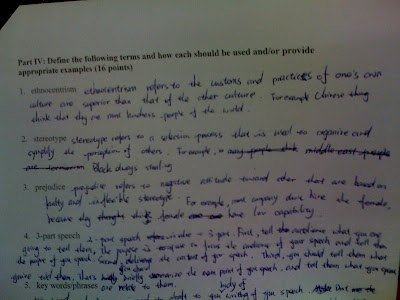 Part IV: Define the following terms and how each should be used and/or provide
appropriate examples (16 points)
1. ethnocentrism ethnocentrism refers to the customs and practices of one's own
culture are superior than that of the other culture. For example Chinese
think that they are most kindness people of the world.
2. stereotype stereotype refers to a selection process that is used to organize and
symplify the perception of others. For example,
Black always stealing
3. prejudice prejudice refers to negative attitude toward other that are based on
faulty and inflexible stereotype. For example, most company dont hire the female,
because they female have low capability.
4. 3-part speech 3-part speech First, tell the audiences what you are
going to tell them, the purpose is to focus the audiency of your speech and tell them
the purpose of you speech. Second, delivery the content of your speech. Third, you should tell them what
you've told them, the main point of speech, and tell them what your speech
are relate to them.
5. key words/phrases
body of
writing of speech